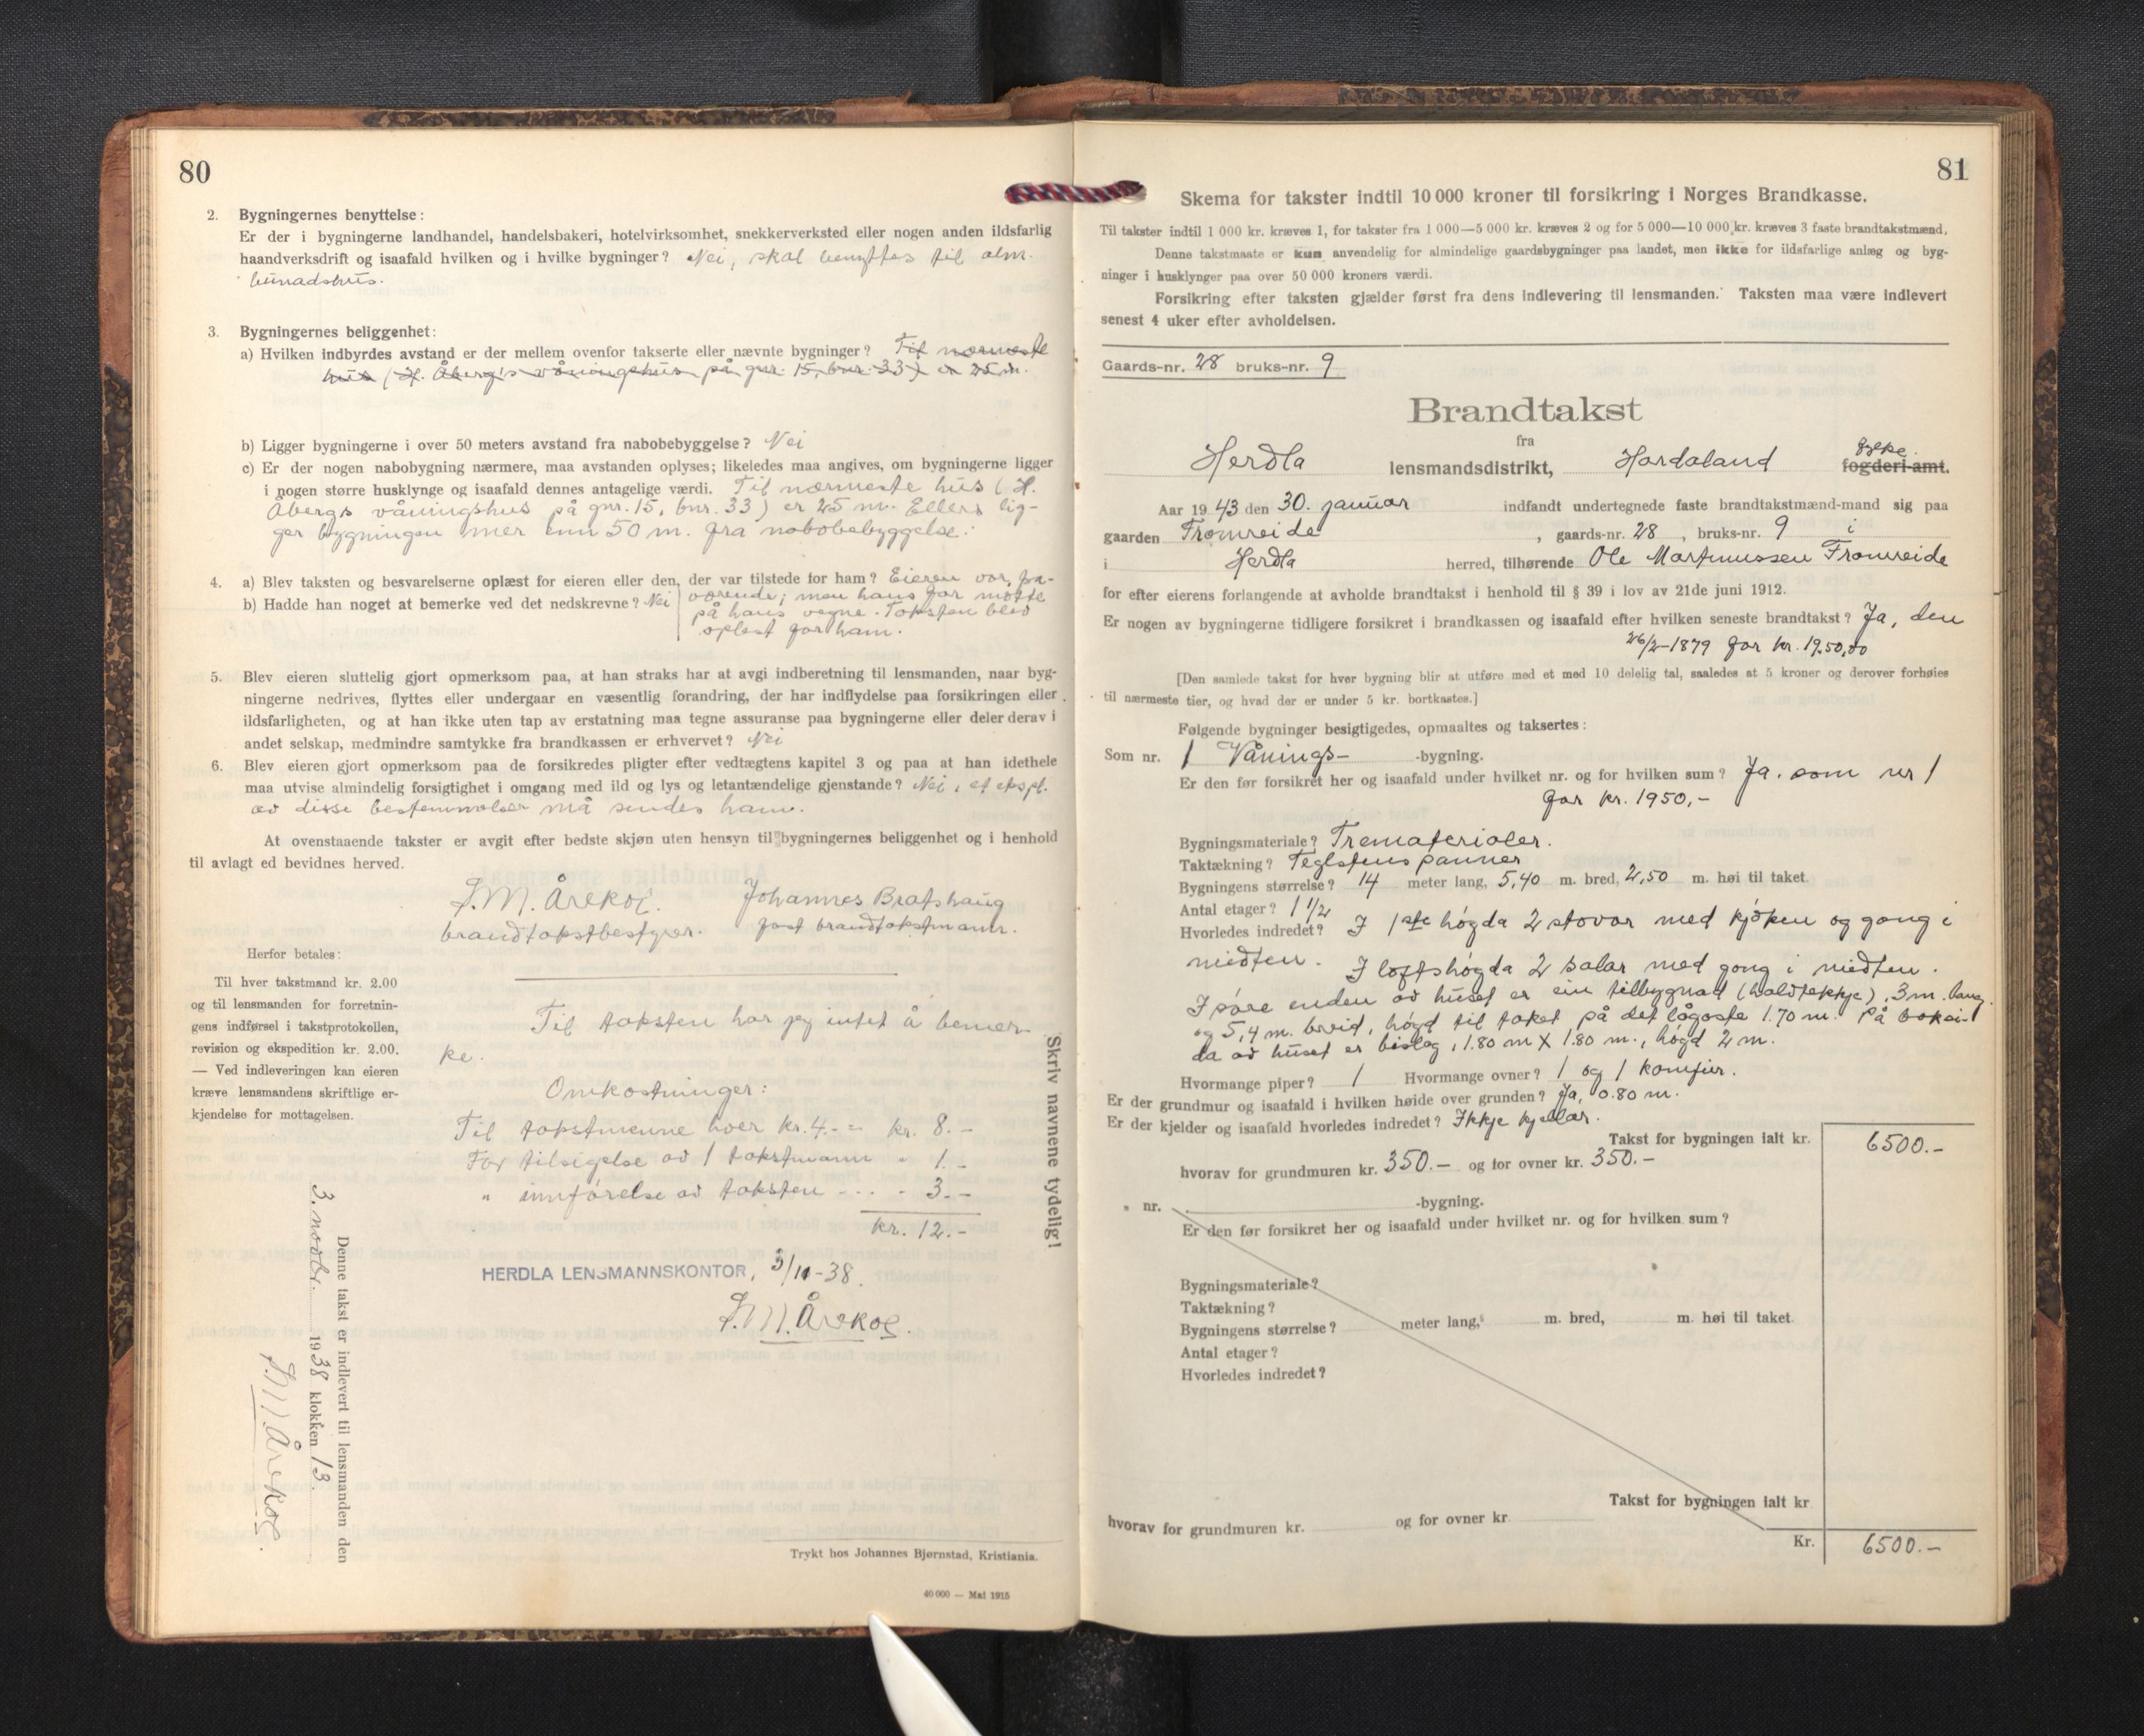 80
2. Bygningernes benyttelse:
Er der i bygningerne landhandel, handelsbakeri, hotelvirksomhet, snekkerverksted eller nogen anden ildsfarlig
haandverksdrift og isaafald hvilken og i hvilke bygninger? Nei, skal benyttes til alm.
bunadshus.
3. Bygningernes beliggenhet:
a) Hvilken indbyrdes avstand er der mellem ovenfor takserte eller nævnte bygninger? Til nærmeste
hus (H. Åberg's våningshus på gnr. 15, bnr. 33) er 25 m.
b) Ligger bygningerne i over 50 meters avstand fra nabobebyggelse? Nei
c) Er der nogen nabobygning nærmere, maa avstanden oplyses; likeledes maa angives, om bygningerne ligger
i nogen større husklynge og isaafald dennes antagelige værdi. Til nærmeste hus (H.
Åbergs våningshus på gnr. 15, bnr. 33) er 25 m. Ellers lig-
ger bygningen mer enn 50 m. fra nabobebyggelse.
4. a) Blev taksten og besvarelserne oplæst for eieren eller den, der var tilstede for ham? Eieren var fra-
b) Hadde han noget at bemerke ved det nedskrevne? Nei værende; men hans far møtte
på hans vegne. Taksten blev
oplest for ham.
5. Blev eieren sluttelig gjort opmerksom paa, at han straks har at avgi indberetning til lensmanden, naar byg-
ningerne nedrives, flyttes eller undergaar en væsentlig forandring, der har indflydelse paa forsikringen eller
ildsfarligheten, og at han ikke uten tap av erstatning maa tegne assuranse paa bygningerne eller deler derav i
andet selskap, medmindre samtykke fra brandkassen er erhvervet? Nei
6. Blev eieren gjort opmerksom paa de forsikredes pligter efter vedtægtens kapitel 3 og paa at han idethele
maa utvise almindelig forsigtighet i omgang med ild og lys og letantændelige gjenstande? Nei, et ekspl.
av disse bestemmelser må sendes ham.
At ovenstaaende takster er avgit efter bedste skjøn uten hensyn til bygningernes beliggenhet og i henhold
til avlagt ed bevidnes herved.
S.M. Årekol. Johannes Bratshaug
brandtakstbestyrer. fast brandtakstmann.
Herfor betales:
Til hver takstmand kr. 2.00
og til lensmanden for forretnin-
gens indførsel i takstprotokollen,
revision og ekspedition kr. 2.00.
— Ved indleveringen kan eieren
kræve lensmandens skriftlige er-
kjendelse for mottagelsen.
Til taksten har jeg intet å bemer-
ke.
Omkostninger:
Til takstmenne hver kr. 4.- = kr. 8.-
For tilsigelse av 1 takstmann " 1.-
" innførelse av taksten - - - " 3.-
kr. 12.-
HERDLA LENSMANNSKONTOR, 3/11-38.
S.M. Årekol.
Skriv navnene tydelig!
Denne takst er indlevert til lensmanden den
3. novbr. 1938 klokken 13.
S.M. Årekol.
Trykt hos Johannes Bjørnstad, Kristiania.
40 000 — Mai 1915
81
Skema for takster indtil 10 000 kroner til forsikring i Norges Brandkasse.
Til takster indtil 1 000 kr. kræves 1, for takster fra 1 000—5 000 kr. kræves 2 og for 5 000—10 000 kr. kræves 3 faste brandtakstmænd.
Denne takstmaate er kun anvendelig for almindelige gaardsbygninger paa landet, men ikke for ildsfarlige anlæg og byg-
ninger i husklynger paa over 50 000 kroners værdi.
Forsikring efter taksten gjælder først fra dens indlevering til lensmanden. Taksten maa være indlevert
senest 4 uker efter avholdelsen.
Gaards-nr. 28 bruks-nr. 9
Brandtakst
fra
Herdla lensmandsdistrikt, Hordaland fylke. fogderi-amt.
Aar 1943 den 30. januar indfandt undertegnede faste brandtakstmænd-mand sig paa
gaarden Fromreide, gaards-nr. 28, bruks-nr. 9 i
i Herdla herred, tilhørende Ole Martinussen Fromreide
for efter eierens forlangende at avholde brandtakst i henhold til § 39 i lov av 21de juni 1912.
Er nogen av bygningerne tidligere forsikret i brandkassen og isaafald efter hvilken seneste brandtakst? Ja, den
26/2-1879 for kr. 1950,00
[Den samlede takst for hver bygning blir at utføre med et med 10 delelig tal, saaledes at 5 kroner og derover forhøies
til nærmeste tier, og hvad der er under 5 kr. bortkastes.]
Følgende bygninger besigtigedes, opmaaltes og taksertes:
Som nr. 1 Vånings- -bygning.
Er den før forsikret her og isaafald under hvilket nr. og for hvilken sum? Ja. som nr 1
for kr. 1950,-
Bygningsmateriale? Trematerialer.
Taktækning? Teglstens panner
Bygningens størrelse? 14 meter lang, 5,40 m. bred, 2,50 m. høi til taket.
Antal etager? 1 1/2
Hvorledes indredet? I 1ste høgda 2 stovor med kjøken og gong i
midten. I loftshøgda 2 salar med gong i midten.
I søre enden av huset er ein tilbygnad (haldtekkje), 3 m. lang
og 5,4 m. breid, høgd til taket på det lågaste 1.70 m. På baksi-
da av huset er bislag, 1.80 m X 1.80 m., høgd 2 m.
Hvormange piper? 1 Hvormange ovner? 1 og 1 komfür.
Er der grundmur og isaafald i hvilken høide over grunden? Ja, 0.80 m.
Er der kjelder og isaafald hvorledes indredet? Ikkje kjellar.
Takst for bygningen ialt kr. 6500.-
hvorav for grundmuren kr. 350.- og for ovner kr. 350.-
" nr. -bygning.
Er den før forsikret her og isaafald under hvilket nr. og for hvilken sum?
Bygningsmateriale?
Taktækning?
Bygningens størrelse? meter lang, m. bred, m. høi til taket.
Antal etager?
Hvorledes indredet?
Takst for bygningen ialt kr.
hvorav for grundmuren kr. og for ovner kr.
Kr. 6500.-